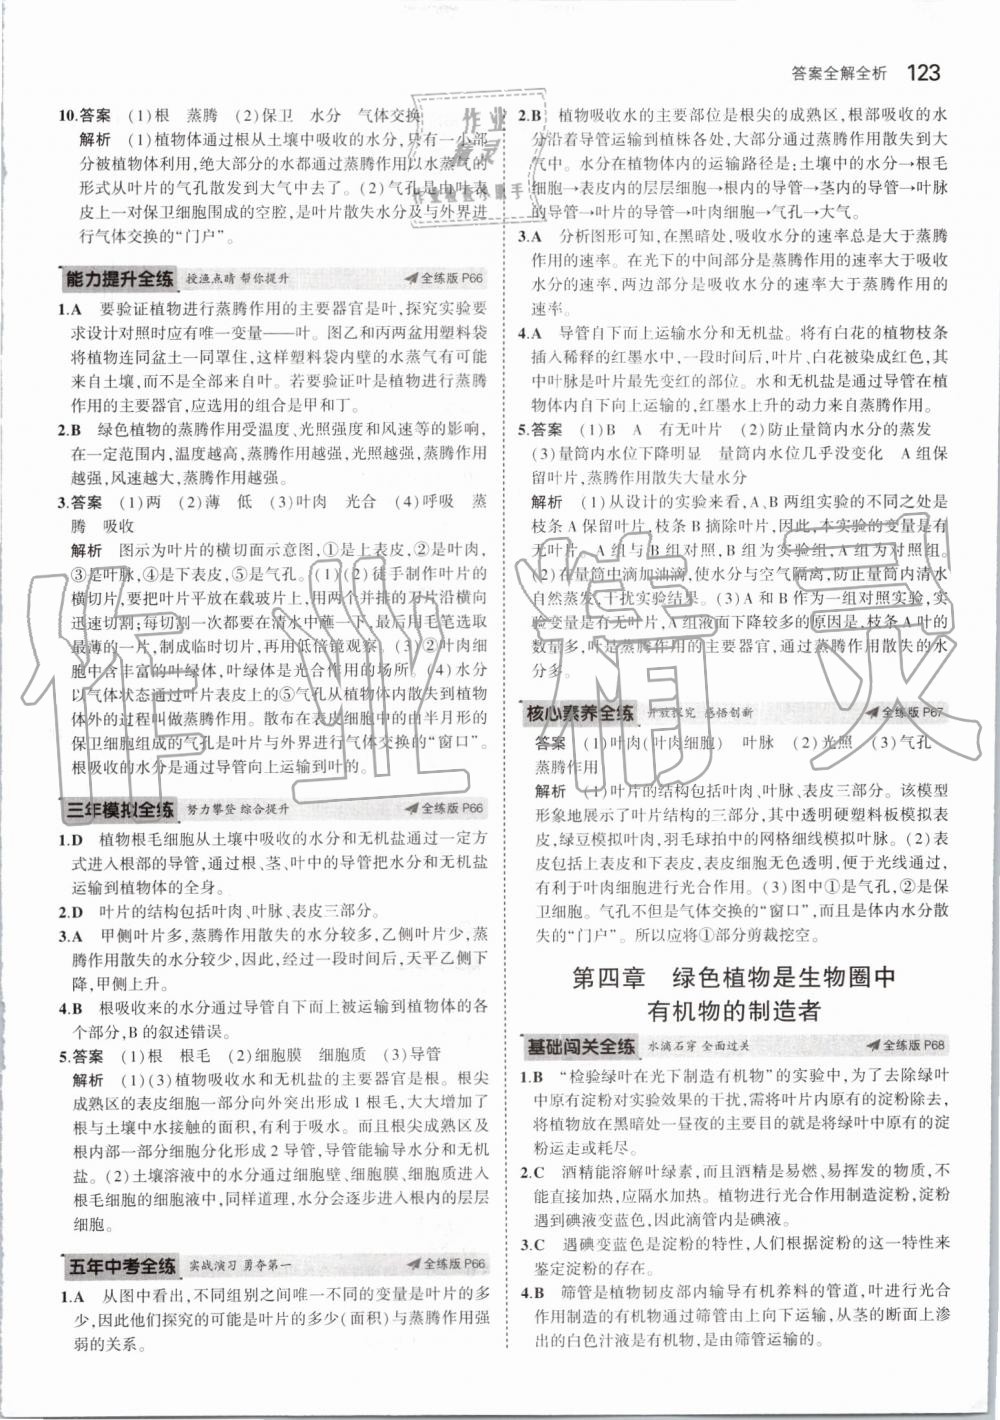 答案全解全析 123
10.答案 (1)根 蒸腾 (2)保卫 水分 气体交换
解析 (1)植物体通过根从土壤中吸收的水分,只有一小部
分被植物体利用,绝大部分的水都通过蒸腾作用以水蒸气的
形式从叶片的气孔散发到大气中去了。(2)气孔是由叶表
皮上一对保卫细胞围成的空腔,是叶片散失水分及与外界进
行气体交换的“门户”。
能力提升全练 授渔点睛 帮你提升 全练版 P66
1.A 要验证植物进行蒸腾作用的主要器官是叶,探究实验要
求设计对照时应有唯一变量——叶。图乙和丙两盆用塑料袋
将植物连同盆土一同罩住,这样塑料袋内壁的水蒸气有可能
来自土壤,而不是全部来自叶。若要验证叶是植物进行蒸腾
作用的主要器官,应选用的组合是甲和丁。
2.B 绿色植物的蒸腾作用受温度、光照强度和风速等的影响,
在一定范围内,温度越高,蒸腾作用越强;光照越强,蒸腾作用
越强,风速越大,蒸腾作用越强。
3.答案 (1)两 (2)薄 低 (3)叶肉 光合 (4)呼吸 蒸
腾 吸收
解析 图示为叶片的横切面示意图,①是上表皮,②是叶肉,
③是叶脉,④是下表皮,⑤是气孔。(1)(2)徒手制作叶片的
横切片,要把叶片平放在载玻片上,用两个并排的刀片沿横向
迅速切割;每切割一次都要在清水中蘸一下,最后用毛笔选取
最薄的一片,制成临时切片,再用低倍镜观察。(3)②叶肉细
胞中含丰富的叶绿体,叶绿体是光合作用的场所。(4)水分
以气体状态通过叶片表皮上的⑤气孔从植物体内散失到植物
体外的过程叫做蒸腾作用。散布在表皮细胞中的由半月形的
保卫细胞组成的气孔是叶片与外界进行气体交换的“窗口”。
根吸收的水分是通过导管向上运输到叶的。
三年模拟全练 努力攀登 综合提升 全练版 P66
1.D 植物根毛细胞从土壤中吸收的水分和无机盐通过一定方
式进入根部的导管,通过根、茎、叶中的导管把水分和无机盐
运输到植物体的全身。
2.D 叶片的结构包括叶肉、叶脉、表皮三部分。
3.A 甲侧叶片多,蒸腾作用散失的水分较多,乙侧叶片少,蒸
腾作用散失的水分较少,因此,经过一段时间后,天平乙侧下
降,甲侧上升。
4.B 根吸收来的水分通过导管自下而上被运输到植物体的各
个部分,B 的叙述错误。
5.答案 (1)根 根毛 (2)细胞膜 细胞质 (3)导管
解析 (1)(3)植物吸收水和无机盐的主要器官是根。根尖
成熟区的表皮细胞一部分向外突出形成 1 根毛,大大增加了
根与土壤中水接触的面积,有利于吸水。而且根尖成熟区及
根内部一部分细胞分化形成 2 导管,导管能输导水分和无机
盐。(2)土壤溶液中的水分通过细胞壁、细胞膜、细胞质进入
根毛细胞的细胞液中,同样道理,水分会逐步进入根内的层层
细胞。
五年中考全练 实战演习 勇夺第一 全练版 P66
1.A 从图中看出,不同组别之间唯一不同的变量是叶片的多
少,因此他们探究的可能是叶片的多少(面积)与蒸腾作用强
弱的关系。
2.B 植物吸收水的主要部位是根尖的成熟区,根部吸收的水
分沿着导管运输到植株各处,大部分通过蒸腾作用散失到大
气中。水分在植物体内的运输路径是:土壤中的水分→根毛
细胞→表皮内的层层细胞→根内的导管→茎内的导管→叶脉
的导管→叶片→叶肉细胞→气孔→大气。
3.A 分析图形可知,在黑暗处,吸收水分的速率总是大于蒸腾
作用的速率。在光下的中间部分是蒸腾作用的速率大于吸收
水分的速率,两边部分是吸收水分的速率大于蒸腾作用的
速率。
4.A 导管自下而上运输水分和无机盐。将有白花的植物枝条
插入稀释的红墨水中,一段时间后,叶片、白花被染成红色,其
中叶脉是叶片最先变红的部位。水和无机盐是通过导管在植
物体内自下向上运输的,红墨水上升的动力来自蒸腾作用。
5.答案 (1)B A 有无叶片 (2)防止量筒内水分的蒸发
(3)量筒内水位下降明显 量筒内水位几乎没变化 A 组保
留叶片,蒸腾作用散失大量水分
解析 (1)从设计的实验来看,A、B 两组实验的不同之处是
枝条 A 保留叶片,枝条 B 摘除叶片,因此,本实验的变量是有
无叶片。A 组与 B 组对照,B 组为实验组,A 组为对照组。
(2)在量筒中滴加油滴,使水分与空气隔离,防止量筒内清水
自然蒸发,干扰实验结果。(3)A 和 B 作为一组对照实验,实
验变量是有无叶片,A组液面下降较多的原因是,枝条 A 叶的
数量多,叶是蒸腾作用的主要器官,通过蒸腾作用散失的水
分多。
核心素养全练 开放探究 感悟创新 全练版 P67
答案 (1)叶肉(叶肉细胞) 叶脉 (2)光照 (3)气孔
蒸腾作用
解析 (1)叶片的结构包括叶肉、叶脉、表皮三部分。该模型
形象地展示了叶片结构的三部分,其中透明硬塑料板模拟表
皮,绿豆模拟叶肉,羽毛球拍中的网格细线模拟叶脉。(2)表
皮包括上表皮和下表皮,表皮细胞无色透明,便于光线通过,
有利于叶肉细胞进行光合作用。(3)图中①是气孔,②是保
卫细胞。气孔不但是气体交换的“窗口”,而且是体内水分散
失的“门户”。所以应将①部分剪裁挖空。
第四章 绿色植物是生物圈中
有机物的制造者
基础闯关全练 水滴石穿 全面过关 全练版 P68
1.B “检验绿叶在光下制造有机物”的实验中,为了去除绿叶
中原有淀粉对实验效果的干扰,需将叶片内原有的淀粉除去,
将植物放在黑暗处一昼夜的主要目的就是将绿叶中原有的淀
粉运走或耗尽。
2.C 酒精能溶解叶绿素,而且酒精是易燃、易挥发的物质,不
能直接加热,应隔水加热。植物进行光合作用制造淀粉,淀粉
遇到碘液变蓝色,因此滴管内是碘液。
3.C 遇碘变蓝色是淀粉的特性,人们根据淀粉的这一特性来
鉴定淀粉的存在。
4.B 筛管是植物韧皮部内输导有机养料的管道,叶进行光合
作用制造的有机物通过筛管由上向下运输,从茎的断面上渗
出的白色汁液是有机物,是由筛管运输的。
作业精灵